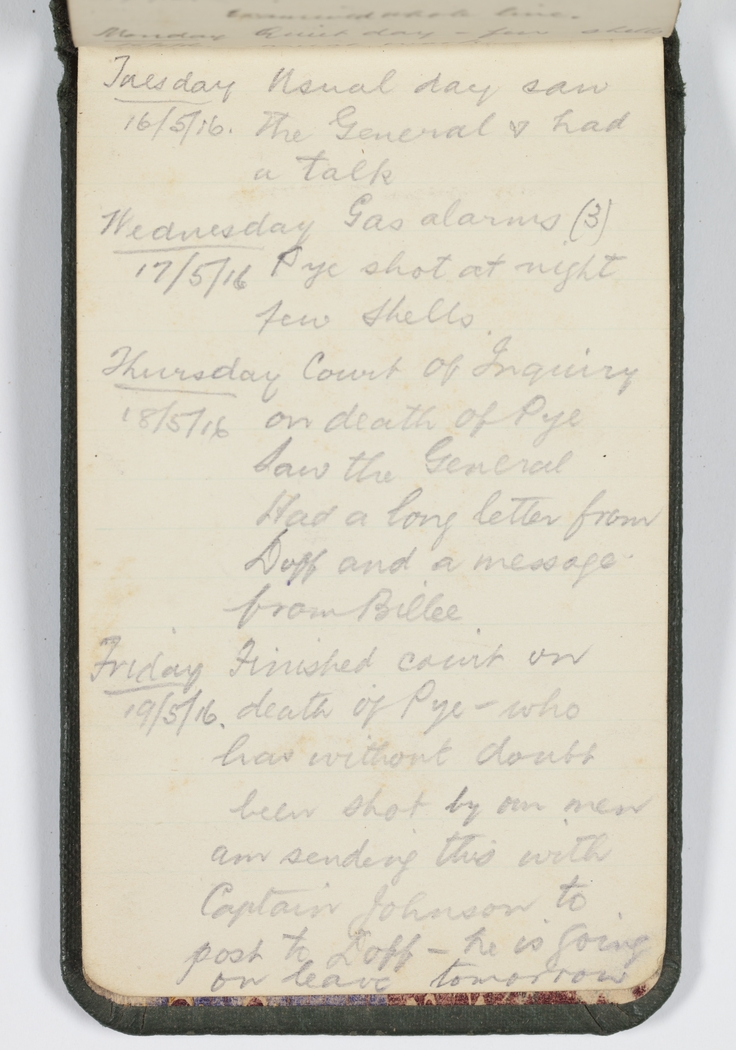 Monday Quiet day - few shells
Tuesday Usual day saw
16/5/16. the General & had
a talk
Wednesday Gas alarms (3)
17/5/16 Pye shot at night
few shells.
Thursday Court of Inquiry
18/5/16 on death of Pye
Saw the General
Had a long letter from
Doff and a message
from Billee
Friday Finished court on
19/5/16. death of Pye - who
has without doubt
been shot by our men
am sending this with
Captain Johnson to
post to Doff - he is going
on leave tomorrow